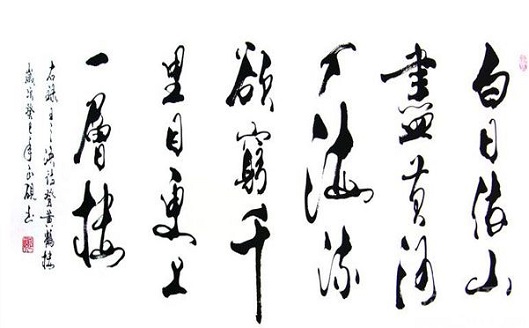 白日依山
盡黄河
入海流
欲窮千
里目更上
一層樓
右録王之渙詩登黄鶴樓
歲次癸巳年碩书